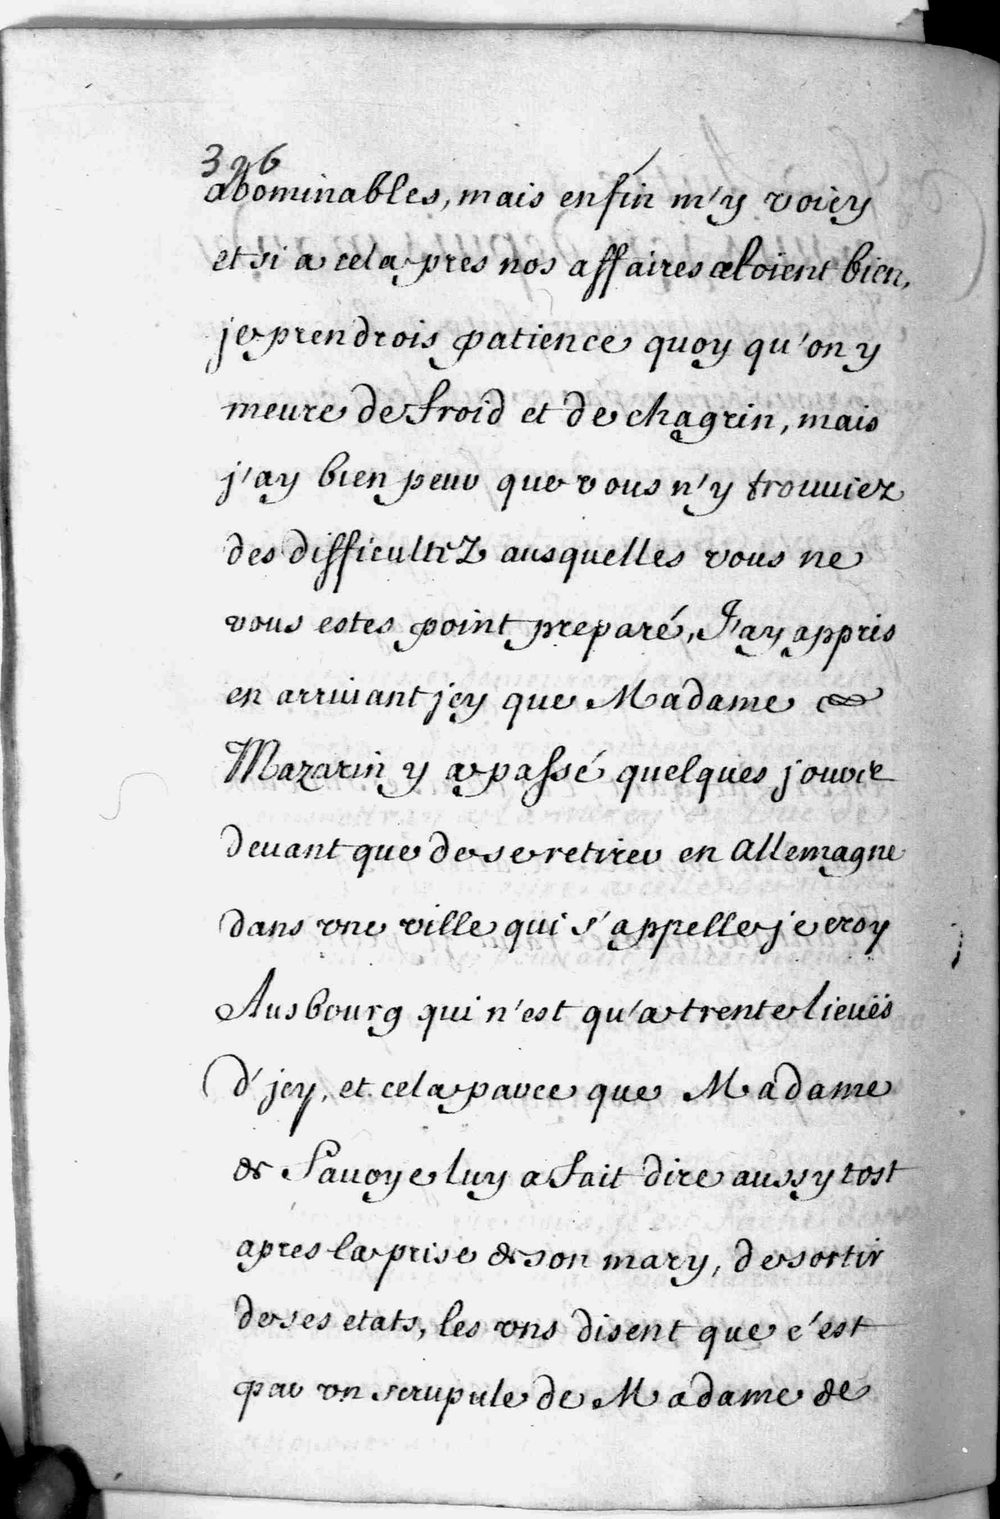 326
abominables, mais enfin m'y voicy
et si a cela pres nos affaires aloient bien,
je prendrois patience quoy qu'on y
meure de froid et de chagrin, mais
j'ay bien peur que vous n'y trouuiez
des difficultez ausquelles vous ne
vous estes point preparé, J'ay appris
en arriuant jcy que Madame
Mazarin y a passé quelques jours
deuant que de se retirer en allemagne
dans vne ville qui s'appelle je croy
Ausbourg qui n'est qu'a trente lieuës
d'jcy, et cela parce que Madame
de Sauoye luy a fait dire aussy tost
apres la prise de son mary, de sortir
de ses etats, les vns disent que c'est
par vn scrupule de Madame de